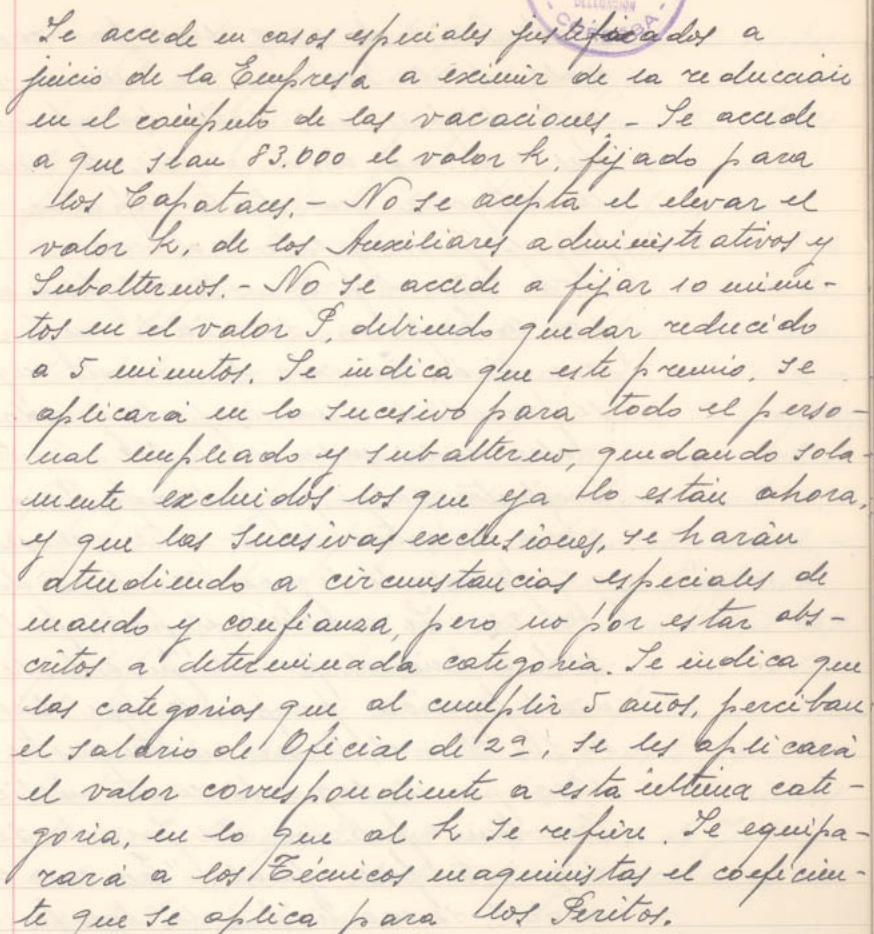 DELEGACIÓN
CÓRDOBA
Se accede en casos especiales justificados a
juicio de la Empresa a eximir de la reducción
en el cómputo de las vacaciones - Se accede
a que sean 83.000 el valor k, fijado para
los Capataces. - No se acepta el elevar el
valor k, de los Auxiliares administrativos y
Subalternos. - No se accede a fijar 10 minu-
tos en el valor P, debiendo quedar reducido
a 5 minutos. Se indica que este premio, se
aplicará en lo sucesivo para todo el perso-
nal empleado y subalterno, quedando sola-
mente excluidos los que ya lo están ahora,
y que las sucesivas exclusiones, se harán
atendiendo a circunstancias especiales de
mando y confianza, pero no por estar abs-
critos a determinada categoria. Se indica que
las categorias que al cumplir 5 años, perciban
el salario de Oficial de 2ª, se les aplicará
el valor correspondiente a esta última cate-
goria, en lo que al k se refiere. Se equipa-
rará a los Técnicos maquinistas el coeficien-
te que se aplica para los Peritos.